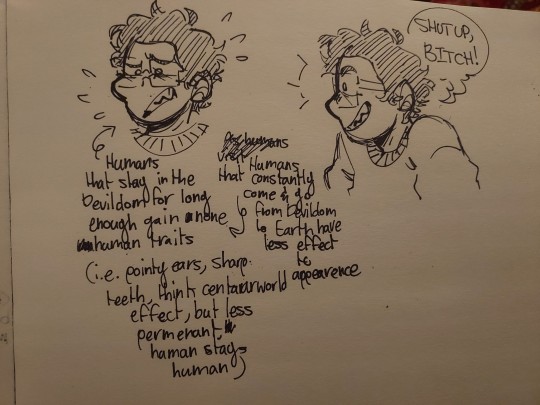 SHUT UP,
BITCH!
Humans
that stay in the
Devildom for long
enough gain none
human traits
(i.e. pointy ears, sharp
teeth, think centaurworld
effect, but less
permenant,
haman stays
human)
humans
Humans
that constantly
come & go
from Devildom
to Earth have
less effect
to
appearence